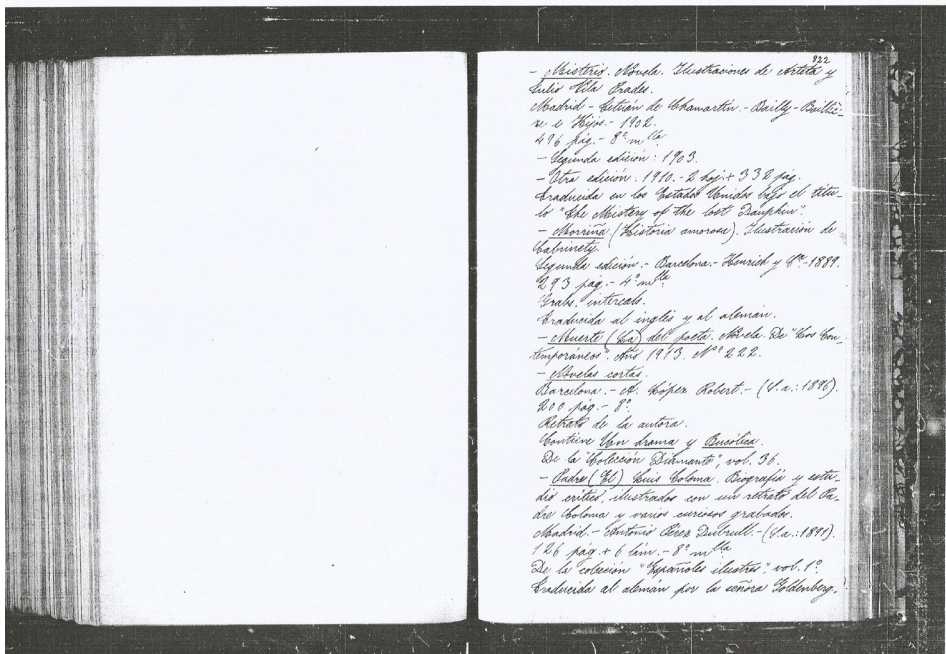 822
- Misterio. Novela. Ilustraciones de Arteta y
Julio Vila Prades.
Madrid - Estián de Chamartín. - Bailly - Bailliè-
re e Hijos. - 1902.
496 pág. - 8º mlla
- Segunda edición: 1903.
- Otra edición: 1910. - 2 hoj. + 332 pág.
Traducida en los Estados Unidos bajo el títu-
lo "The Mistery of the lost Dauphin".
- Morriña. (Historia amorosa). Ilustración de
Cabrinety.
Segunda edición. - Barcelona. - Henrich y Cª - 1889.
293 pág. - 4º mlla
Grabs. intercals.
Traducida al inglés y al alemán.
- Muerte (La) del poeta. Novela. De "Los Con-
temporáneos". Año 1913. Nº 222.
- Novelas cortas.
Barcelona. - A. López Robert. - (S. a.: 1896).
200 pág. - 8º.
Retrato de la autora.
Contiene Un drama y Bucólica.
De la "Colección Diamante", vol. 36.
- Padre (El) Luis Coloma. Biografía y estu-
dio crítico, ilustrados con un retrato del Pa-
dre Coloma y varios curiosos grabados.
Madrid. - Antonio Pérez Dubrull. - (S. a.: 1891).
126 pág. + 6 lám. - 8º mlla
De la colección "Españoles ilustres". vol. 1º.
Traducida al alemán por la señora Goldenberg.